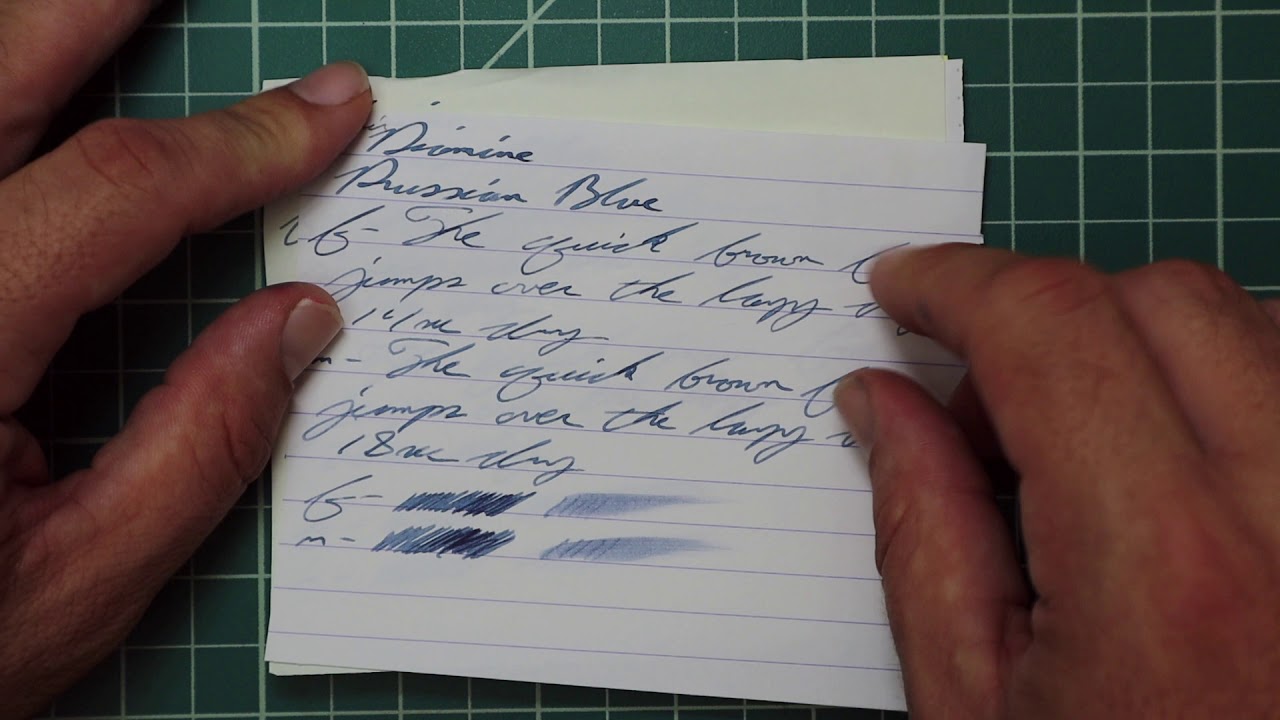 Diamine
Prussian Blue
f- The quick brown
jumps over the lazy
14sec dry
m- The quick brown
jumps over the lazy
18sec dry
f-
m-